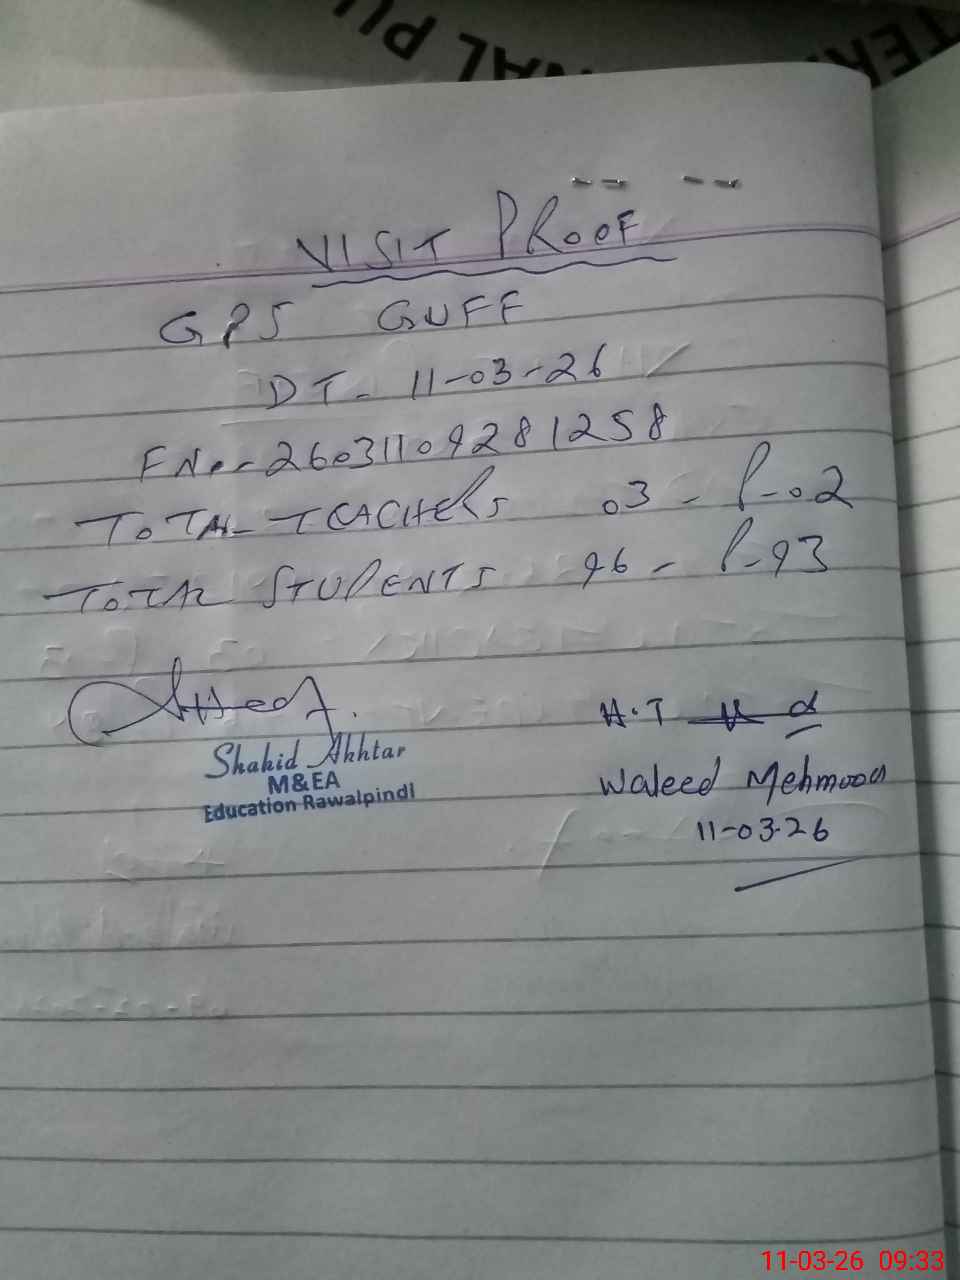 VISIT PROOF
GPS GUFF
DT- 11-03-26
F No.- 26031109281258
TOTAL TEACHERS 03 - P-02
TOTAL STUDENTS 96 - P-93
Shahid Akhtar
M&EA
Education Rawalpindi
H.T
Waleed Mehmood
11-03-26
11-03-26 09:33